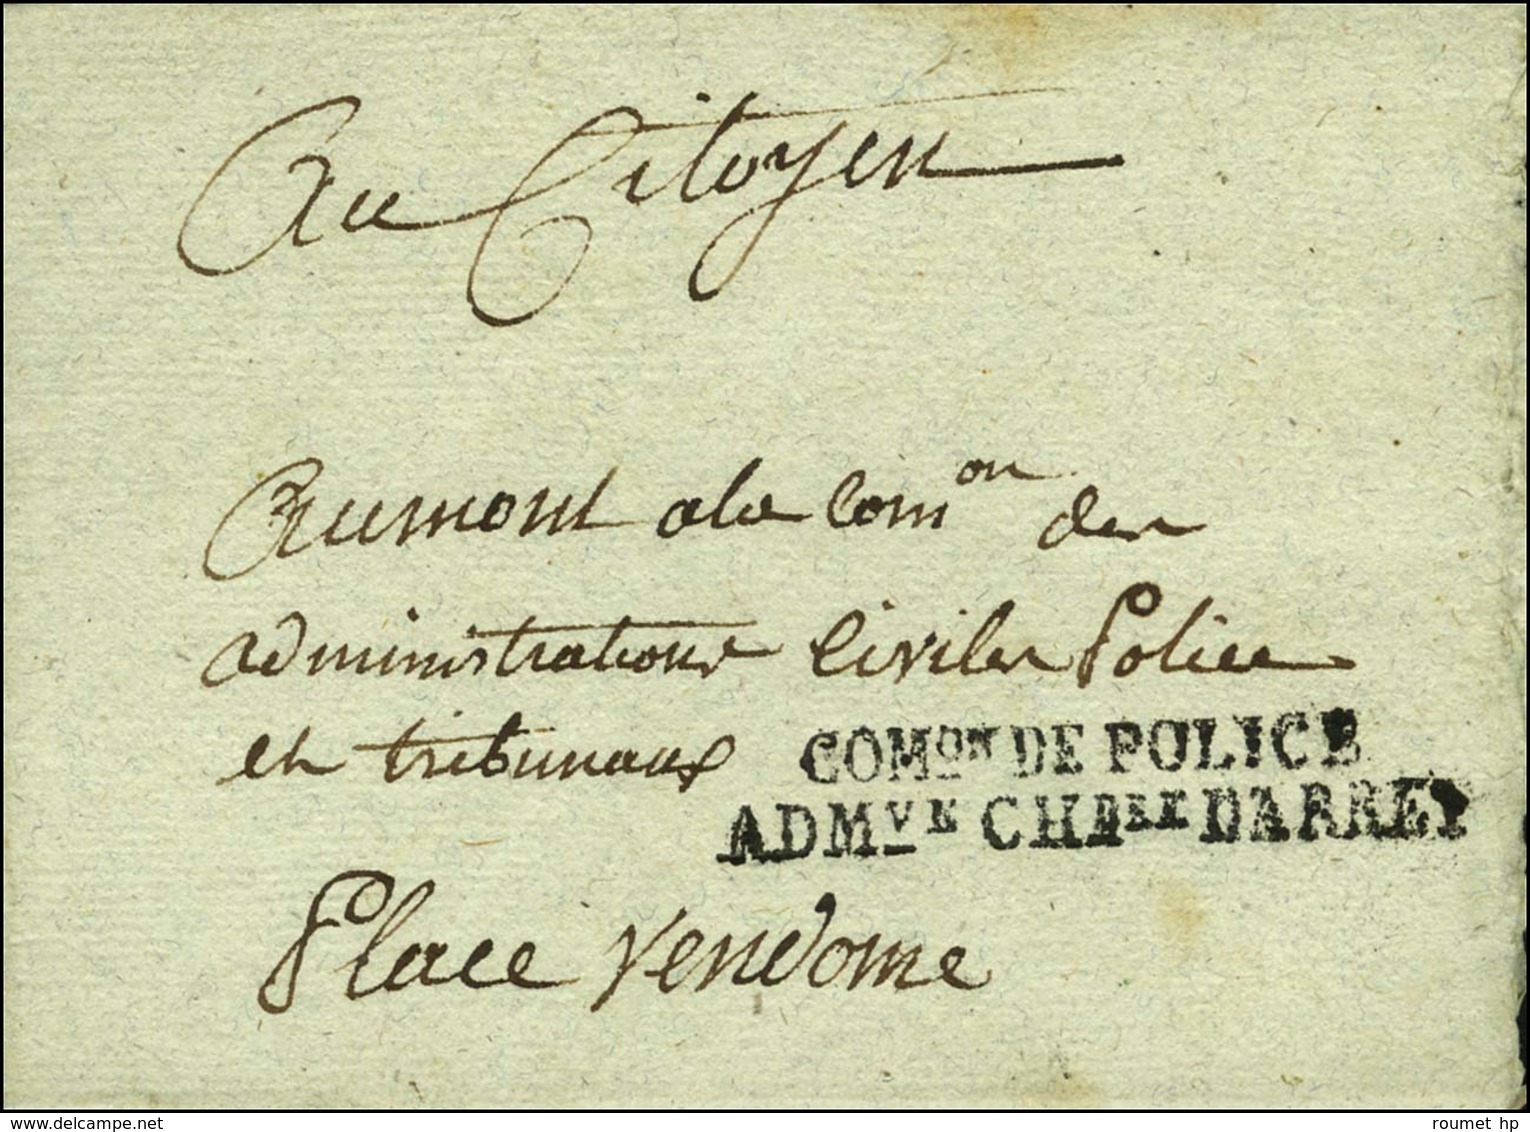 Au Citoyen
Aumont a la Com.on des
administrations Civiles Police
et tribunaux
COM.ON DE POLICE
ADM.VE CH.BRE D'ARRET
Place Vendome
delcampe.net
roumet hp